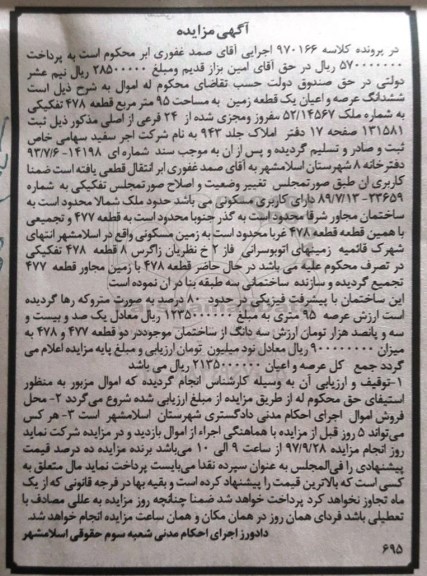 آگهی مزایده
در پرونده کلاسه ۹۷۰۱۶۶ اجرایی آقای صمد غفوری ابر محکوم است به پرداخت
۵۷۰۰۰۰۰۰۰ ریال در حق آقای امین بزاز قدیم ومبلغ ۲۸۵۰۰۰۰۰ ریال نیم عشر
دولتی در حق صندوق دولت حسب تقاضای محکوم له اموال به شرح ذیل است
ششدانگ عرصه و اعیان یک قطعه زمین به مساحت ۹۵ متر مربع قطعه ۴۷۸ تفکیکی
به شماره ملک ۵۲/۱۴۵۶۷ مفروز ومجزی شده از ۲۴ فرعی از اصلی مذکور ذیل ثبت
۱۳۱۵۸۱ صفحه ۱۷ دفتر املاک جلد ۹۴۳ به نام شرکت اجر سفید سهامی خاص
ثبت و صادر و تسلیم گردیده و پس از ان به موجب سند شماره ای ۱۴۱۹۸-۹۳/۷/۶
دفترخانه ۸ شهرستان اسلامشهر به آقای صمد غفوری ابر انتقال قطعی یافته است ضمنا
کاربری ان طبق صورتمجلس تغییر وضعیت و اصلاح صورتمجلس تفکیکی به شماره
۳۳۶۵۹-۸۹/۷/۱۳ دارای کاربری مسکونی می باشد حدود ملک شمالا محدود است به
ساختمان مجاور شرقا محدود است به گذر جنوبا محدود است به قطعه ۴۷۷ و تجمیعی
با همین قطعه قطعه ۴۷۸ غربا محدود است به زمین مسکونی واقع در اسلامشهر انتهای
شهرک قائمیه زمینهای اتوبوسرانی فاز ۲ خ نظریان زاگرس ۸ قطعه ۴۷۸ تفکیکی
در تصرف محکوم علیه می باشد در حال حاضر قطعه ۴۷۸ با زمین مجاور قطعه ۴۷۷
تجمیع گردیده و سازنده ساختمانی سه طبقه بنا در ان نموده است
این ساختمان با پیشرفت فیزیکی در حدود ۸۰ درصد به صورت متروکه رها گردیده
است ارزش عرصه ۹۵ متری به مبلغ ۱۲۳۵۰۰۰۰۰۰ ریال معادل یک صد و بیست و
سه و پانصد هزار تومان ارزش سه دانگ از ساختمان موجوددر دو قطعه ۴۷۷ و ۴۷۸ به
میزان ۹۰۰۰۰۰۰۰۰ ریال معادل نود میلیون تومان ارزیابی و مبلغ پایه مزایده اعلام می
گردد جمع کل عرصه و اعیان ۲۱۳۵۰۰۰۰۰۰ ریال می باشد
۱-توقیف و ارزیابی آن به وسیله کارشناس انجام گردیده که اموال مزبور به منظور
استیفای حق محکوم له از طریق مزایده از مبلغ ارزیابی شده شروع می‌گردد ۲- محل
فروش اموال اجرای احکام مدنی دادگستری شهرستان اسلامشهر است ۳- هر کس
می‌تواند ۵ روز قبل از مزایده با هماهنگی اجراء از اموال بازدید و در مزایده شرکت نماید
روز انجام مزایده ۹۷/۹/۲۸ از ساعت ۹ الی ۱۰ می‌باشد برنده مزایده ده درصد قیمت
پیشنهادی را فی‌المجلس به عنوان سپرده نقدا می‌بایست پرداخت نماید مال متعلق به
کسی است که بالاترین قیمت را پیشنهاد کرده است و بقیه بها در فرجه قانونی که از یک
ماه تجاوز نخواهد کرد پرداخت خواهد شد ضمنا چنانچه روز مزایده به عللی مصادف با
تعطیلی باشد فردای همان روز در همان مکان و همان ساعت مزایده انجام خواهد شد.
دادورز اجرای احکام مدنی شعبه سوم حقوقی اسلامشهر
۶۹۵